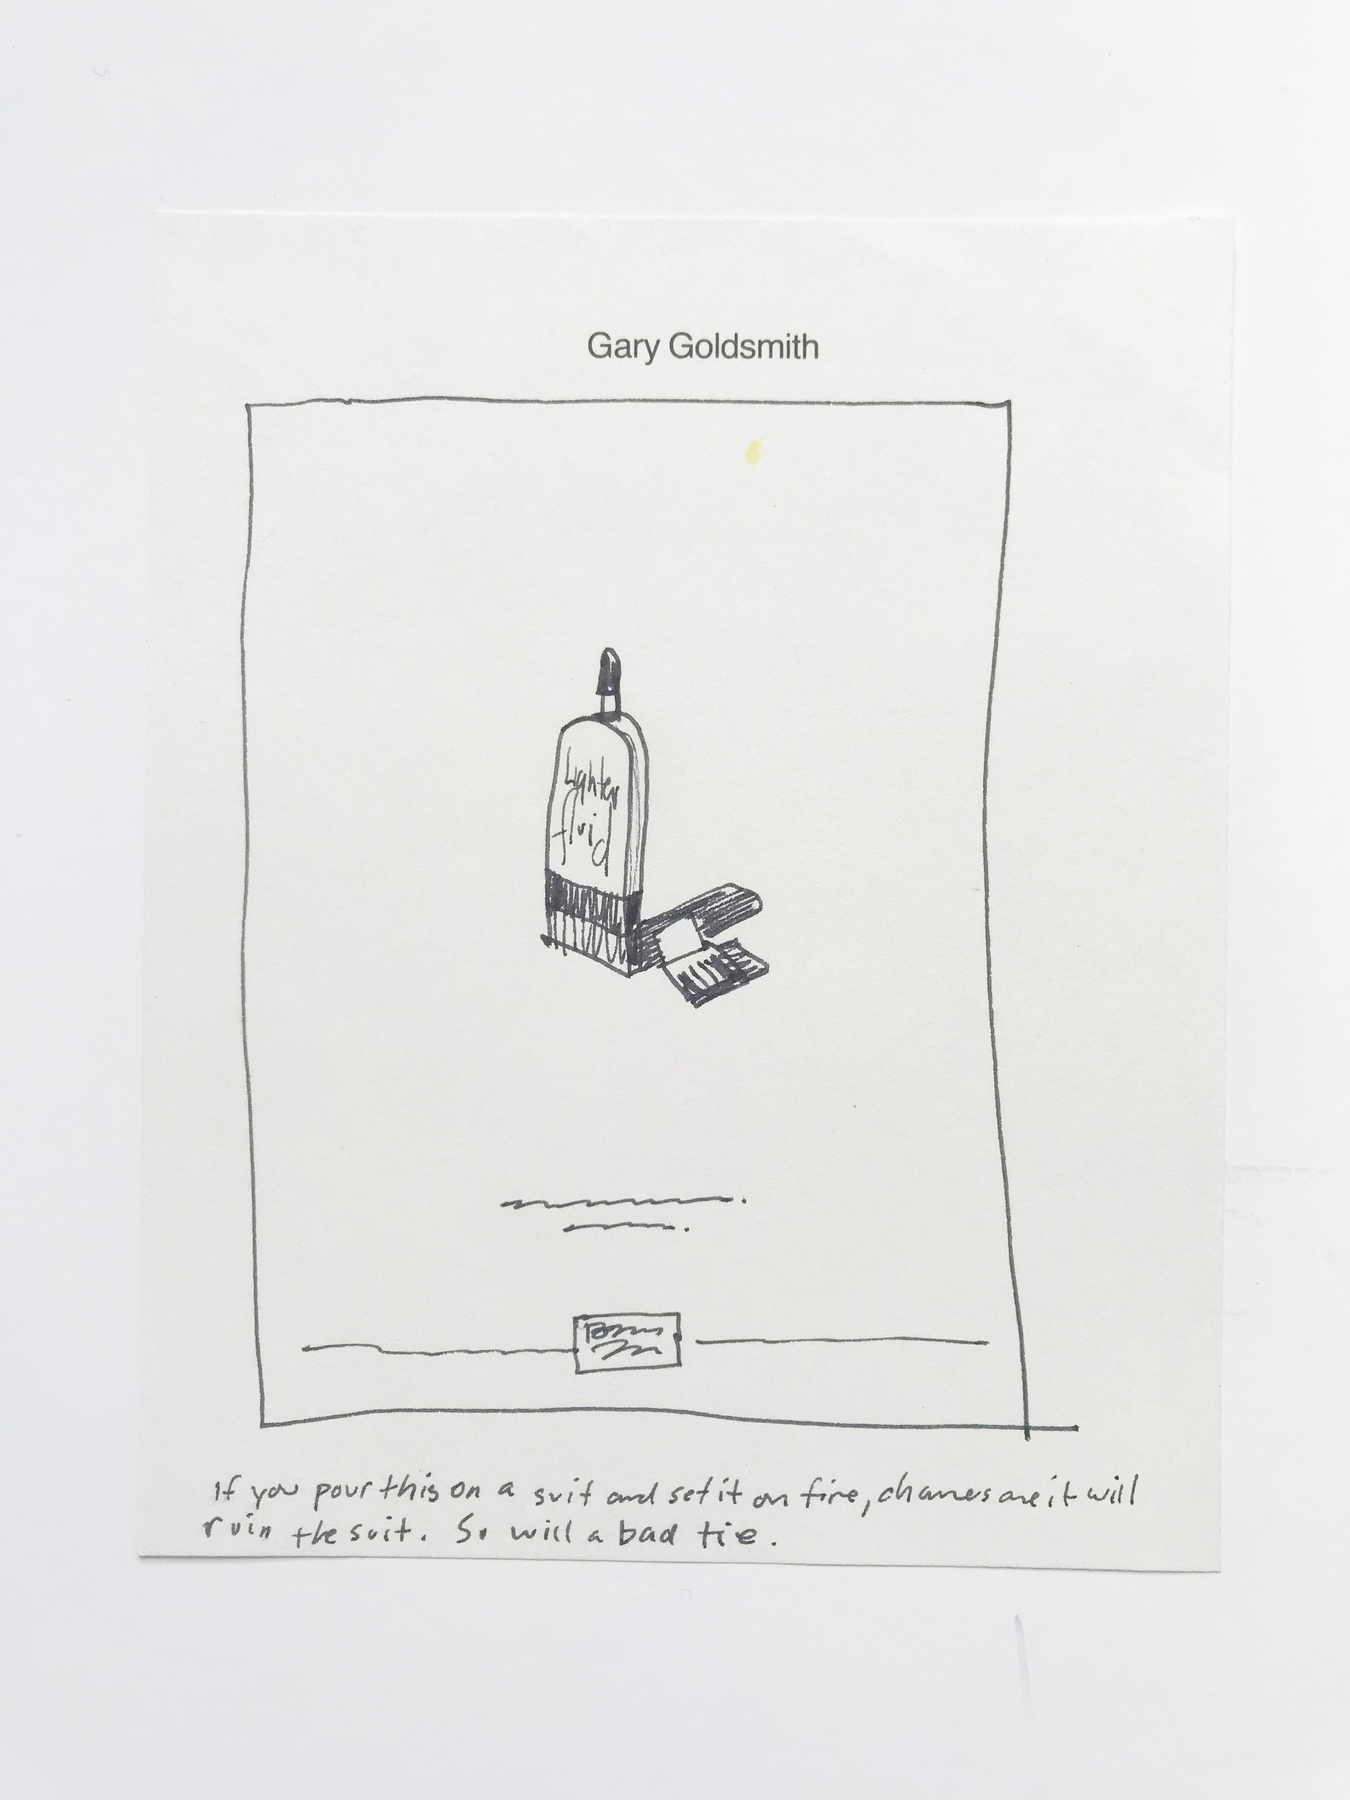 Gary Goldsmith
Lighter
fluid
If you pour this on a suit and set it on fire, chances are it will
ruin the suit. So will a bad tie.